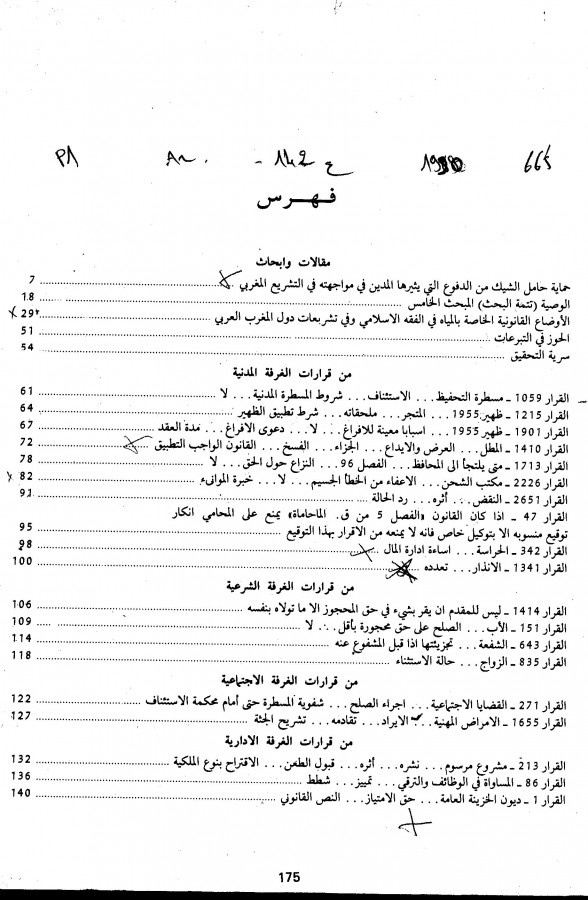 P1 Ar. - 142 ج 19 665
فـهـرس
مقالات وابحاث
حماية حامل الشيك من الدفوع التي يثيرها المدين في مواجهته في التشريع المغربي 7
الوصية (تتمة البحث) المبحث الخامس 18
الأوضاع القانونية الخاصة بالمياه في الفقه الاسلامي وفي تشريعات دول المغرب العربي 29
الحوز في التبرعات 51
سرية التحقيق 54
من قرارات الغرفة المدنية
القرار 1059 ـ مسطرة التحفيظ... الاستئناف... شروط المسطرة المدنية... لا 61
القرار 1215 ـ ظهير 1955... المتجر... ملحقاته... شرط تطبيق الظهير 64
القرار 1901 ـ ظهير 1955... اسبابا معينة للافراغ... لا... دعوى الافراغ... مدة العقد 67
القرار 1410 ـ المطل... العرض والايداع... الجزاء... الفسخ... القانون الواجب التطبيق 72
القرار 1713 ـ متى يلتجأ الى المحافظ... الفصل 96... النزاع حول الحق... لا 78
القرار 2226 ـ مكتب الشحن... الاعفاء من الخطأ الجسيم... لا... خبرة الموانىء 82
القرار 2651 ـ النقض... أثره... رد الحالة 91
القرار 47 ـ اذا كان القانون «الفصل 5 من ق. المحاماة» يمنع على المحامي انكار
توقيع منسوبه الا بتوكيل خاص فانه لا يمنعه من الاقرار بهذا التوقيع 95
القرار 342 ـ الحراسة... اساءة ادارة المال 98
القرار 1341 ـ الانذار... تعدده 100
من قرارات الغرفة الشرعية
القرار 1414 ـ ليس للمقدم ان يقر بشيء في حق المحجوز الا ما تولاه بنفسه 106
القرار 151 ـ الأب... الصلح على حق محجورة بأقل... لا 109
القرار 643 ـ الشفعة... تجزيئتها اذا قبل المشفوع عنه 114
القرار 835 ـ الزواج... حالة الاستثناء 118
من قرارات الغرفة الاجتماعية
القرار 271 ـ القضايا الاجتماعية... اجراء الصلح... شفوية المسطرة حتى أمام محكمة الاستئناف 122
القرار 1655 ـ الامراض المهنية... الايراد... تقادمه... تشريح الجثة 127
من قرارات الغرفة الادارية
القرار 213 ـ مشروع مرسوم... نشره... أثره... قبول الطعن... الاقتراح بنوع الملكية 132
القرار 86 ـ المساواة في الوظائف والترقي... تمييز... شطط 136
القرار 1 ـ ديون الخزينة العامة... حق الامتياز... النص القانوني 140
175